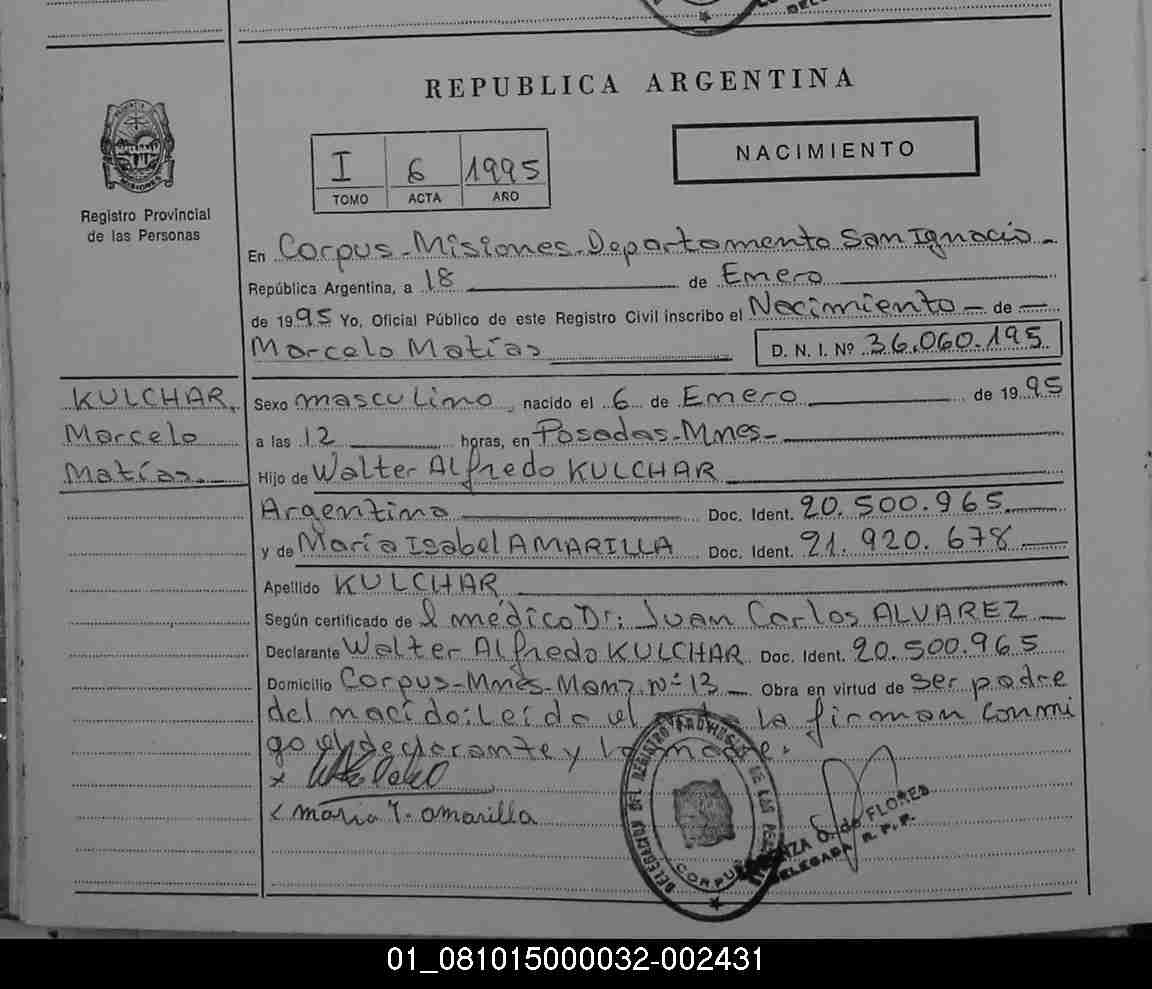 REPUBLICA ARGENTINA
I 6 1995
TOMO ACTA AÑO
NACIMIENTO
MISIONES
Registro Provincial
de las Personas
En Corpus-Misiones-Departamento San Ignacio-
República Argentina, a 18 de Enero
de 1995 Yo, Oficial Público de este Registro Civil inscribo el Nacimiento - de -
Marcelo Matías D. N. I. Nº 36.060.195
KULCHAR,
Marcelo
Matías.
Sexo masculino, nacido el 6 de Enero de 1995
a las 12 horas, en Posadas-Mnes-
Hijo de Walter Alfredo KULCHAR
Argentino Doc. Ident. 20.500.965
y de María Isabel AMARILLA Doc. Ident. 21.920.678
Apellido KULCHAR
Según certificado de El médico Dr: Juan Carlos ALVAREZ
Declarante Walter Alfredo KULCHAR Doc. Ident. 20.500.965
Domicilio Corpus-Mnes-Manz. nº 13 - Obra en virtud de ser padre
del nacido: Leída el la firman conmi
go el declarante y la madre.
x
x maria I. amarilla
DELEGACION DEL REGISTRO PROVINCIAL DE LAS
CORPUS
G. de FLORES
DELEGADA R. P. P.
01_081015000032-002431